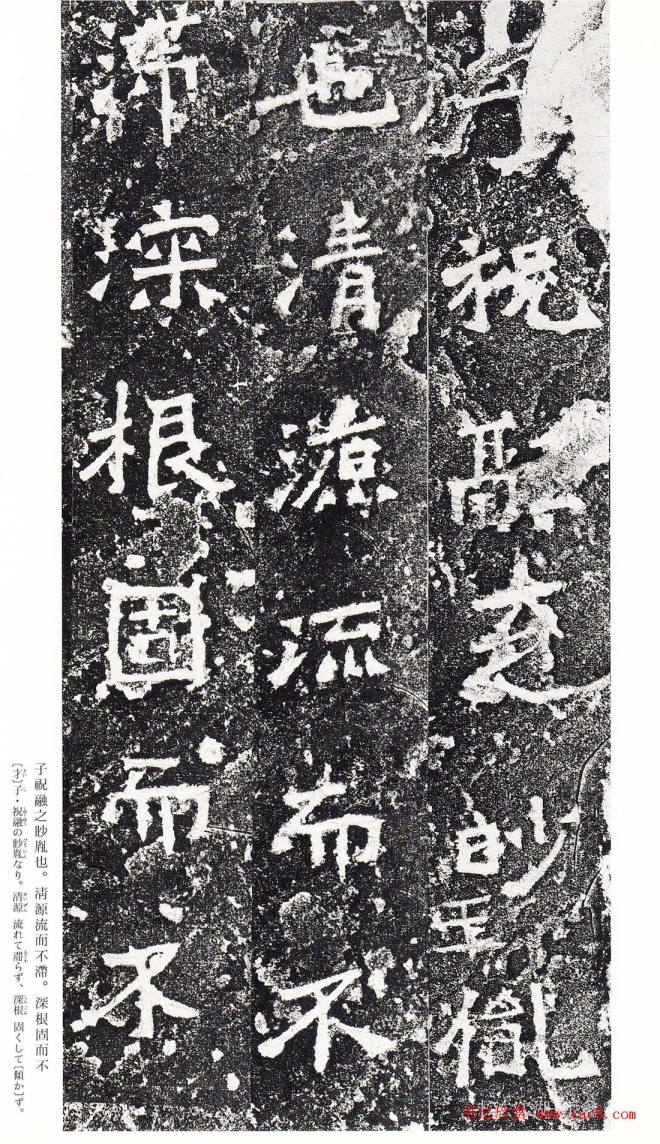 子祝融之眇胤
也清源流而不
滯深根固而不
子祝融之眇胤也。清源流而不滯。深根固而不
〔才〕子・祝融の眇胤なり。清源 流れて滯らず、深根 固くして〔傾か〕ず。
www.yac8.com